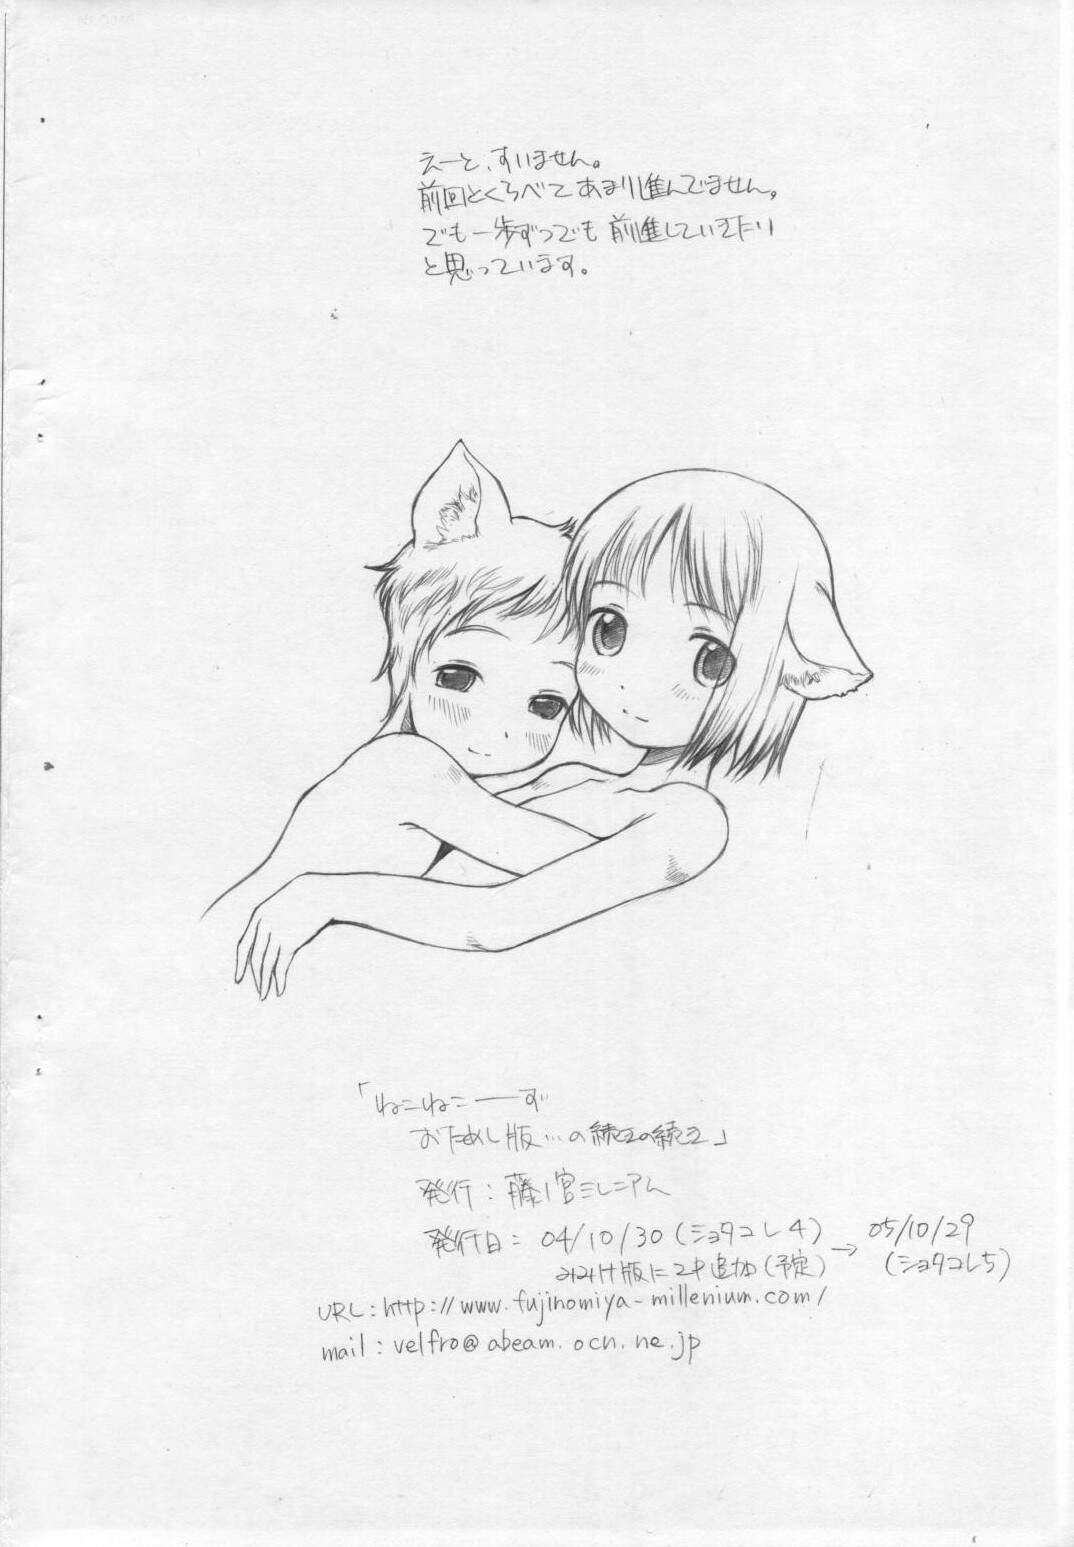 えーと、すいません。
前回とくらべてあまり進んでません。
でも一歩ずつでも前進していきたい
と思っています。
「ねこねこーーず
おためし版…の続きの続き」
発行：藤ノ宮ミレニアム
発行日：04/10/30(ショタコレ4) → 05/10/29
版に2P追加(予定) (ショタコレ5)
URL:http://www.fujinomiya-millenium.com/
mail:velfro@abeam.ocn.ne.jp